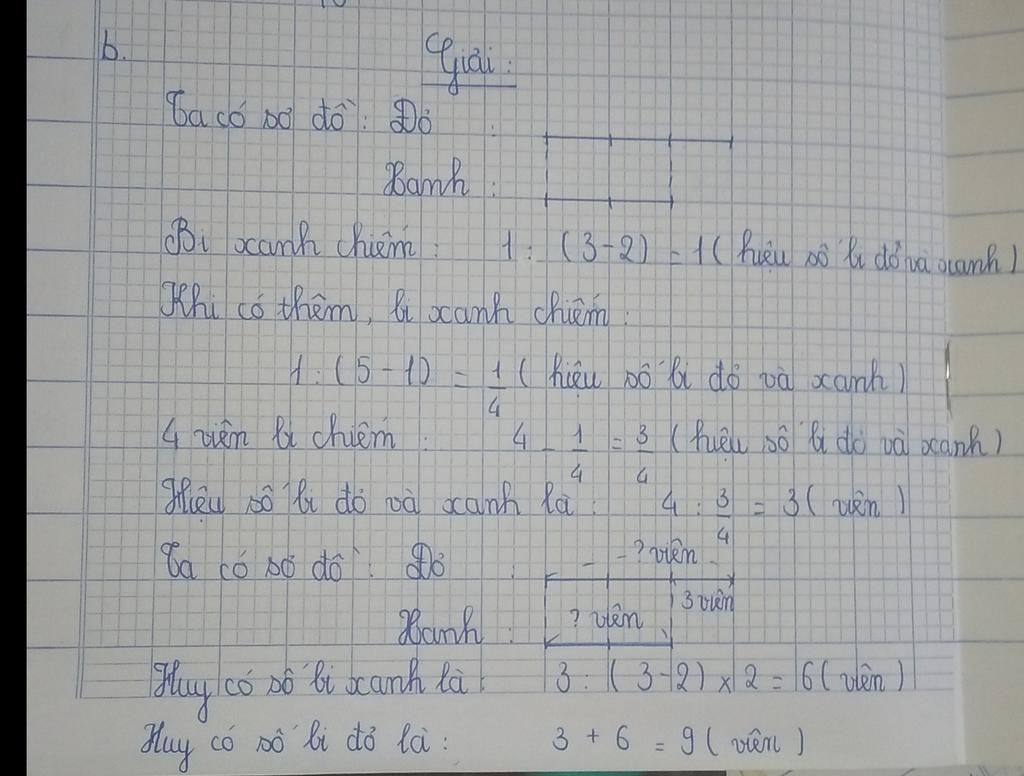 b.
Giải:
Ta có sơ đồ: Đỏ :
Xanh :
Bi xanh chiếm: 1 : (3-2) = 1 ( hiệu số bi đỏ và xanh )
Khi có thêm, bi xanh chiếm:
1 : (5-1) = 1/4 ( hiệu số bi đỏ và xanh )
4 viên bi chiếm: 4 - 1/4 = 3/4 ( hiệu số bi đỏ và xanh )
Hiệu số bi đỏ và xanh là: 4 : 3/4 = 3 ( viên )
Ta có sơ đồ: Đỏ : ? viên
3 viên
Xanh : ? viên
Huy có số bi xanh là: 3 : (3-2) x 2 = 6 ( viên )
Huy có số bi đỏ là: 3 + 6 = 9 ( viên )